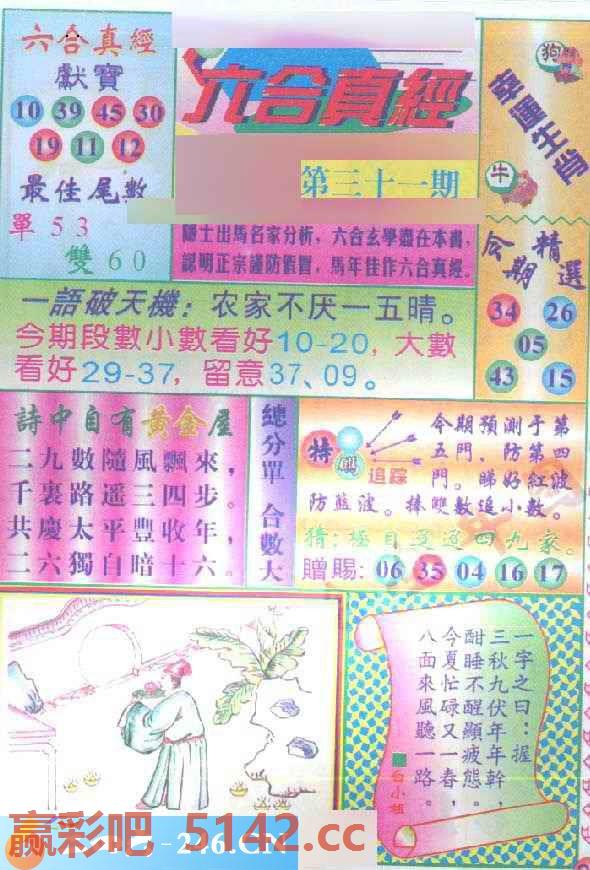 六合真經
獻寶
10 39 45 30
19 11 12
最佳尾數
單 5 3
雙 6 0
六合真經
第三十一期
隱士出馬名家分析，六合玄學盡在本書，
認明正宗謹防假冒，馬年佳作六合真經。
幸運生肖
狗
牛
今期精選
34 26
05
43 15
一語破天機：农家不厌一五晴。
今期段數小數看好10-20，大數
看好29-37，留意37、09。
詩中自有黃金屋
二九數隨風飄來，
千裏路遥三四步。
共慶太平豐收年，
二六獨自暗十六。
總分單 合數大
特
追踪
今期預測于第
五門、防第四
門。睇好紅波
防藍波。捧雙數追小數。
猜：極目
四九家。
贈賜：06 35 04 16 17
一字之曰：握
三秋九伏年年幹，
酣睡不醒顯疲態。
今夏忙碌又一春，
八面來風聽一路。
台小姐
赢彩吧 5142.cc
246.CN